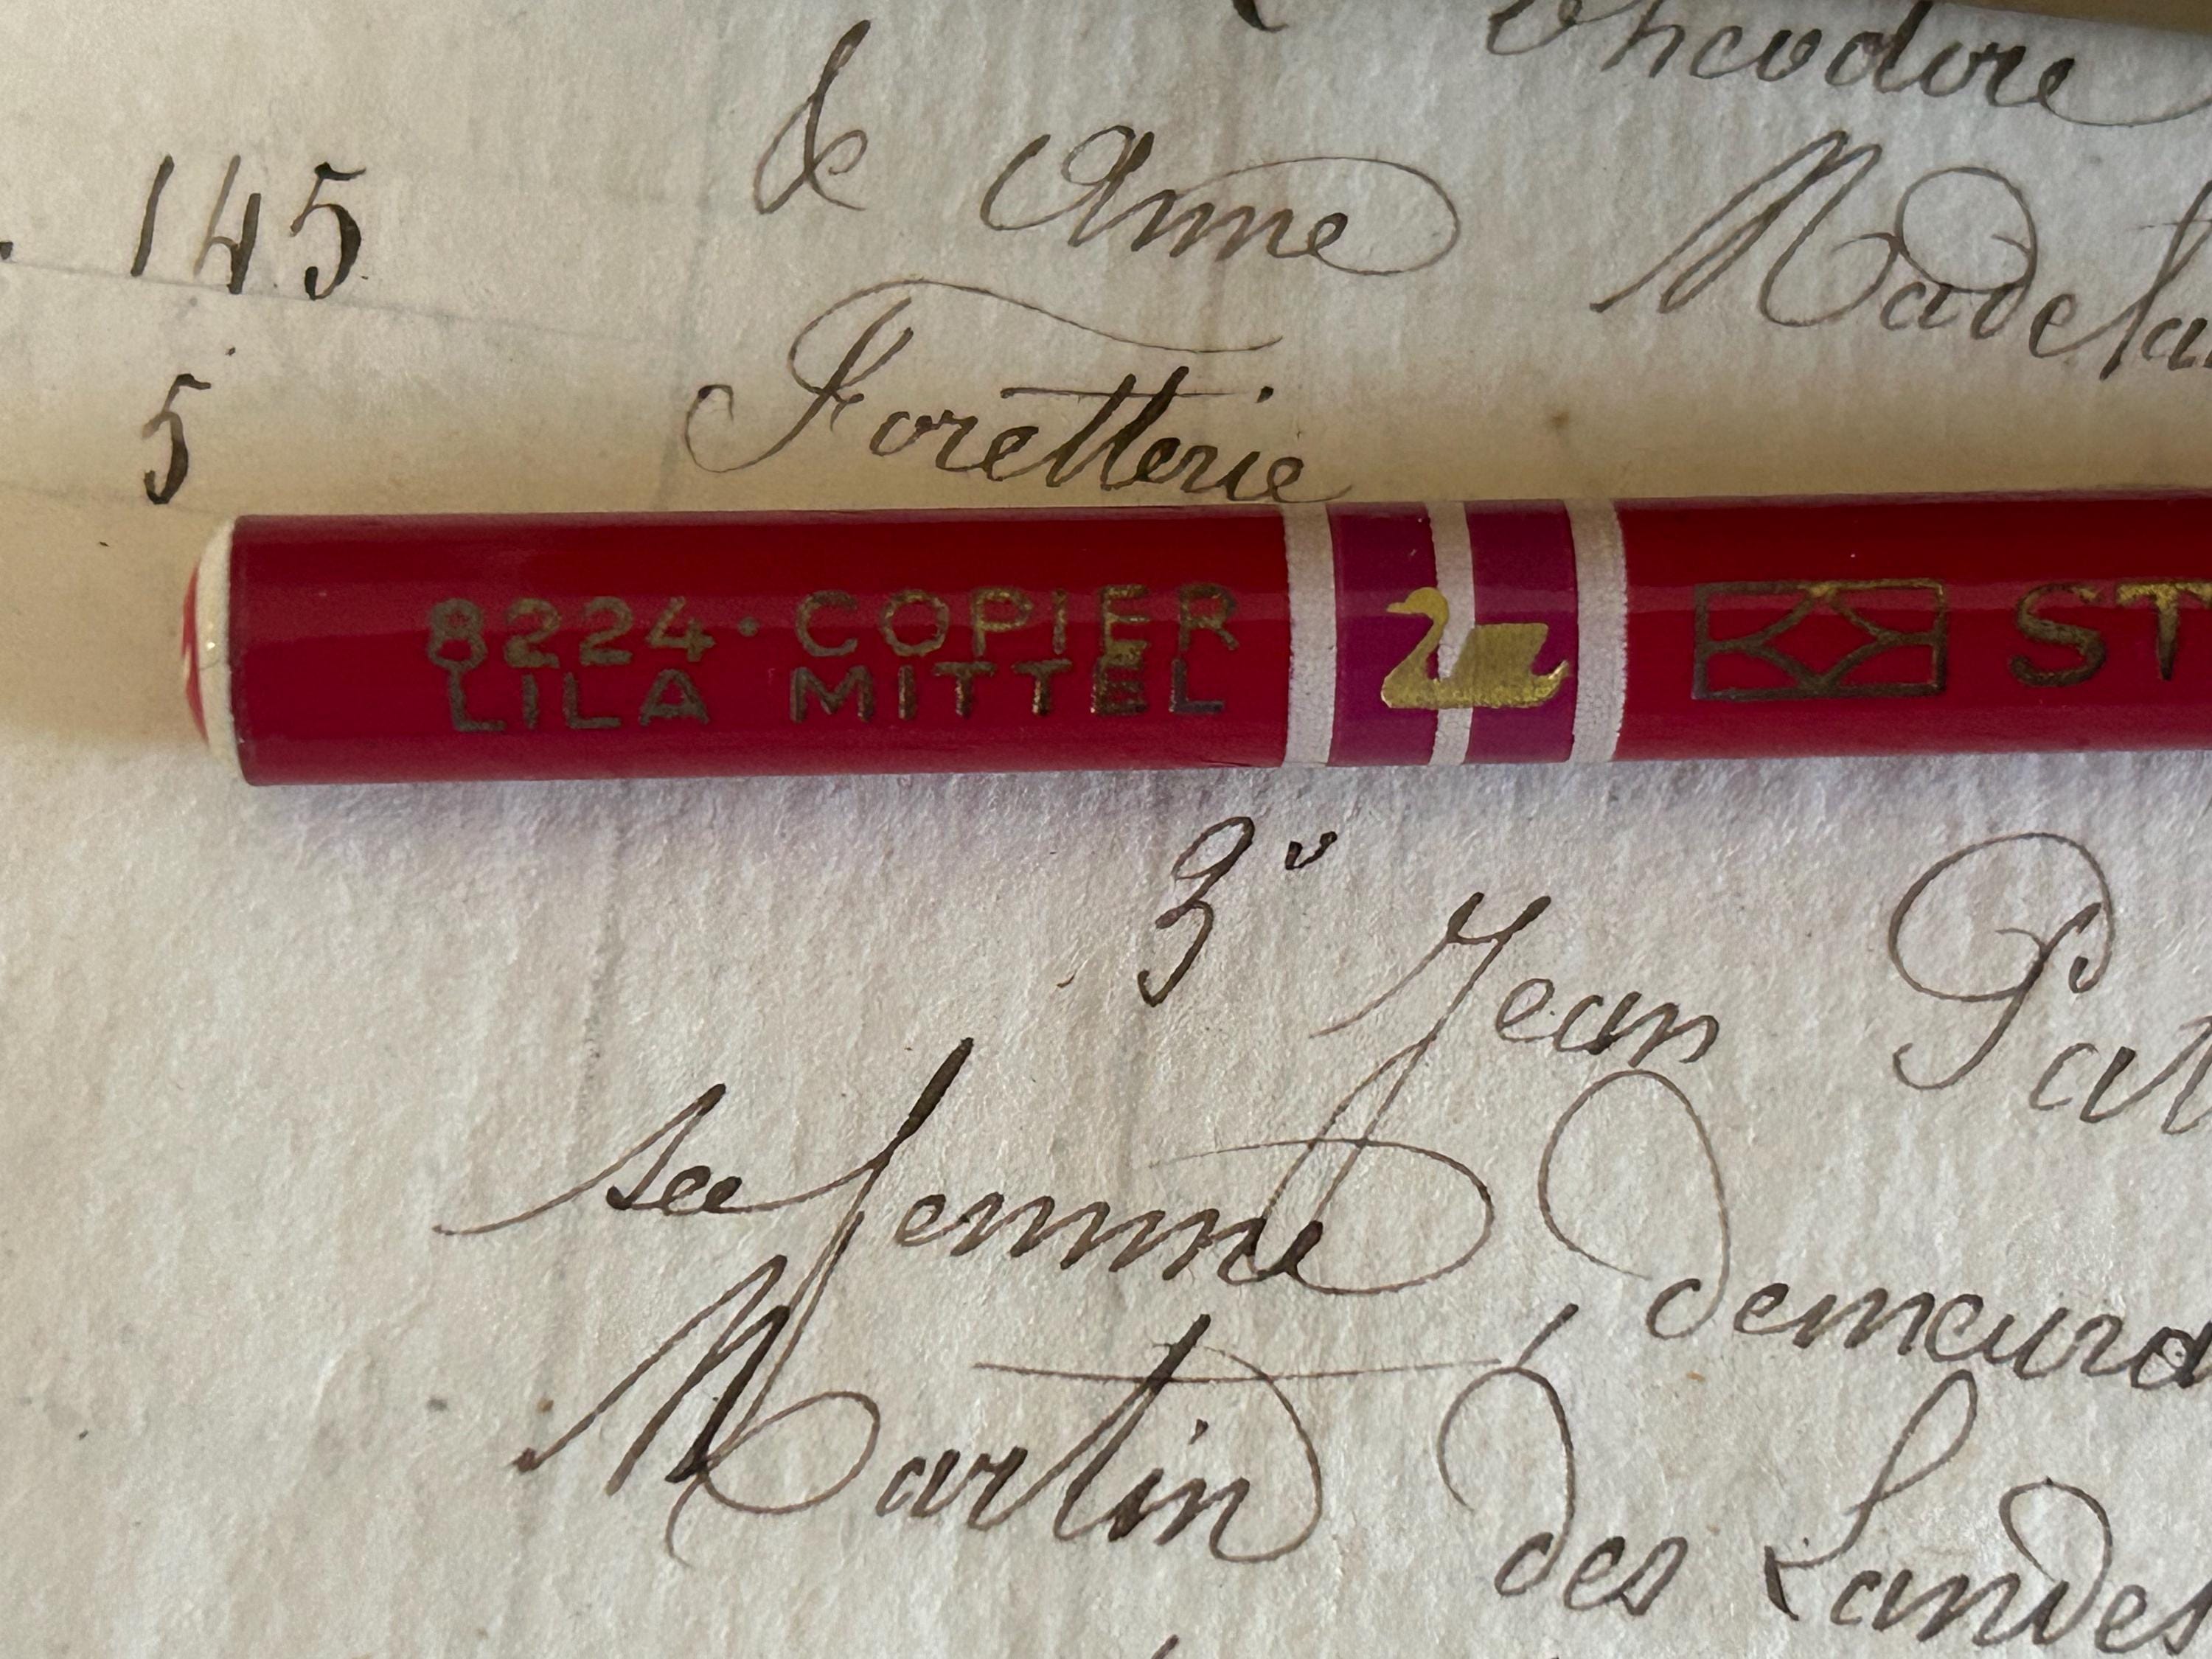 Theodore
& Anne Madela
145
Foretterie
5
8224 · COPIER
LILA MITTEL
ST
3° Jean Pat
sa femme, demeura
Martin des Landes